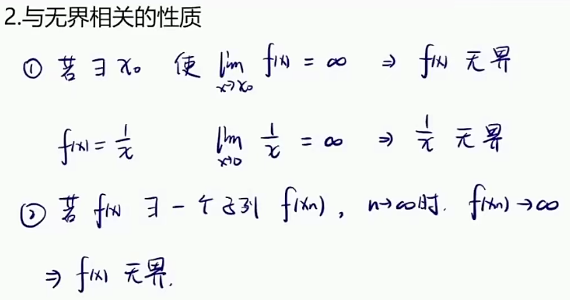 2.与无界相关的性质
① 若 ∃ x₀ 使 lim x→x₀ f(x) = ∞ ⇒ f(x) 无界
f(x) = 1/x lim x→0 1/x = ∞ ⇒ 1/x 无界
② 若 f(x) ∃ 一个子列 f(xn), n→∞时. f(xn)→∞
⇒ f(x) 无界.